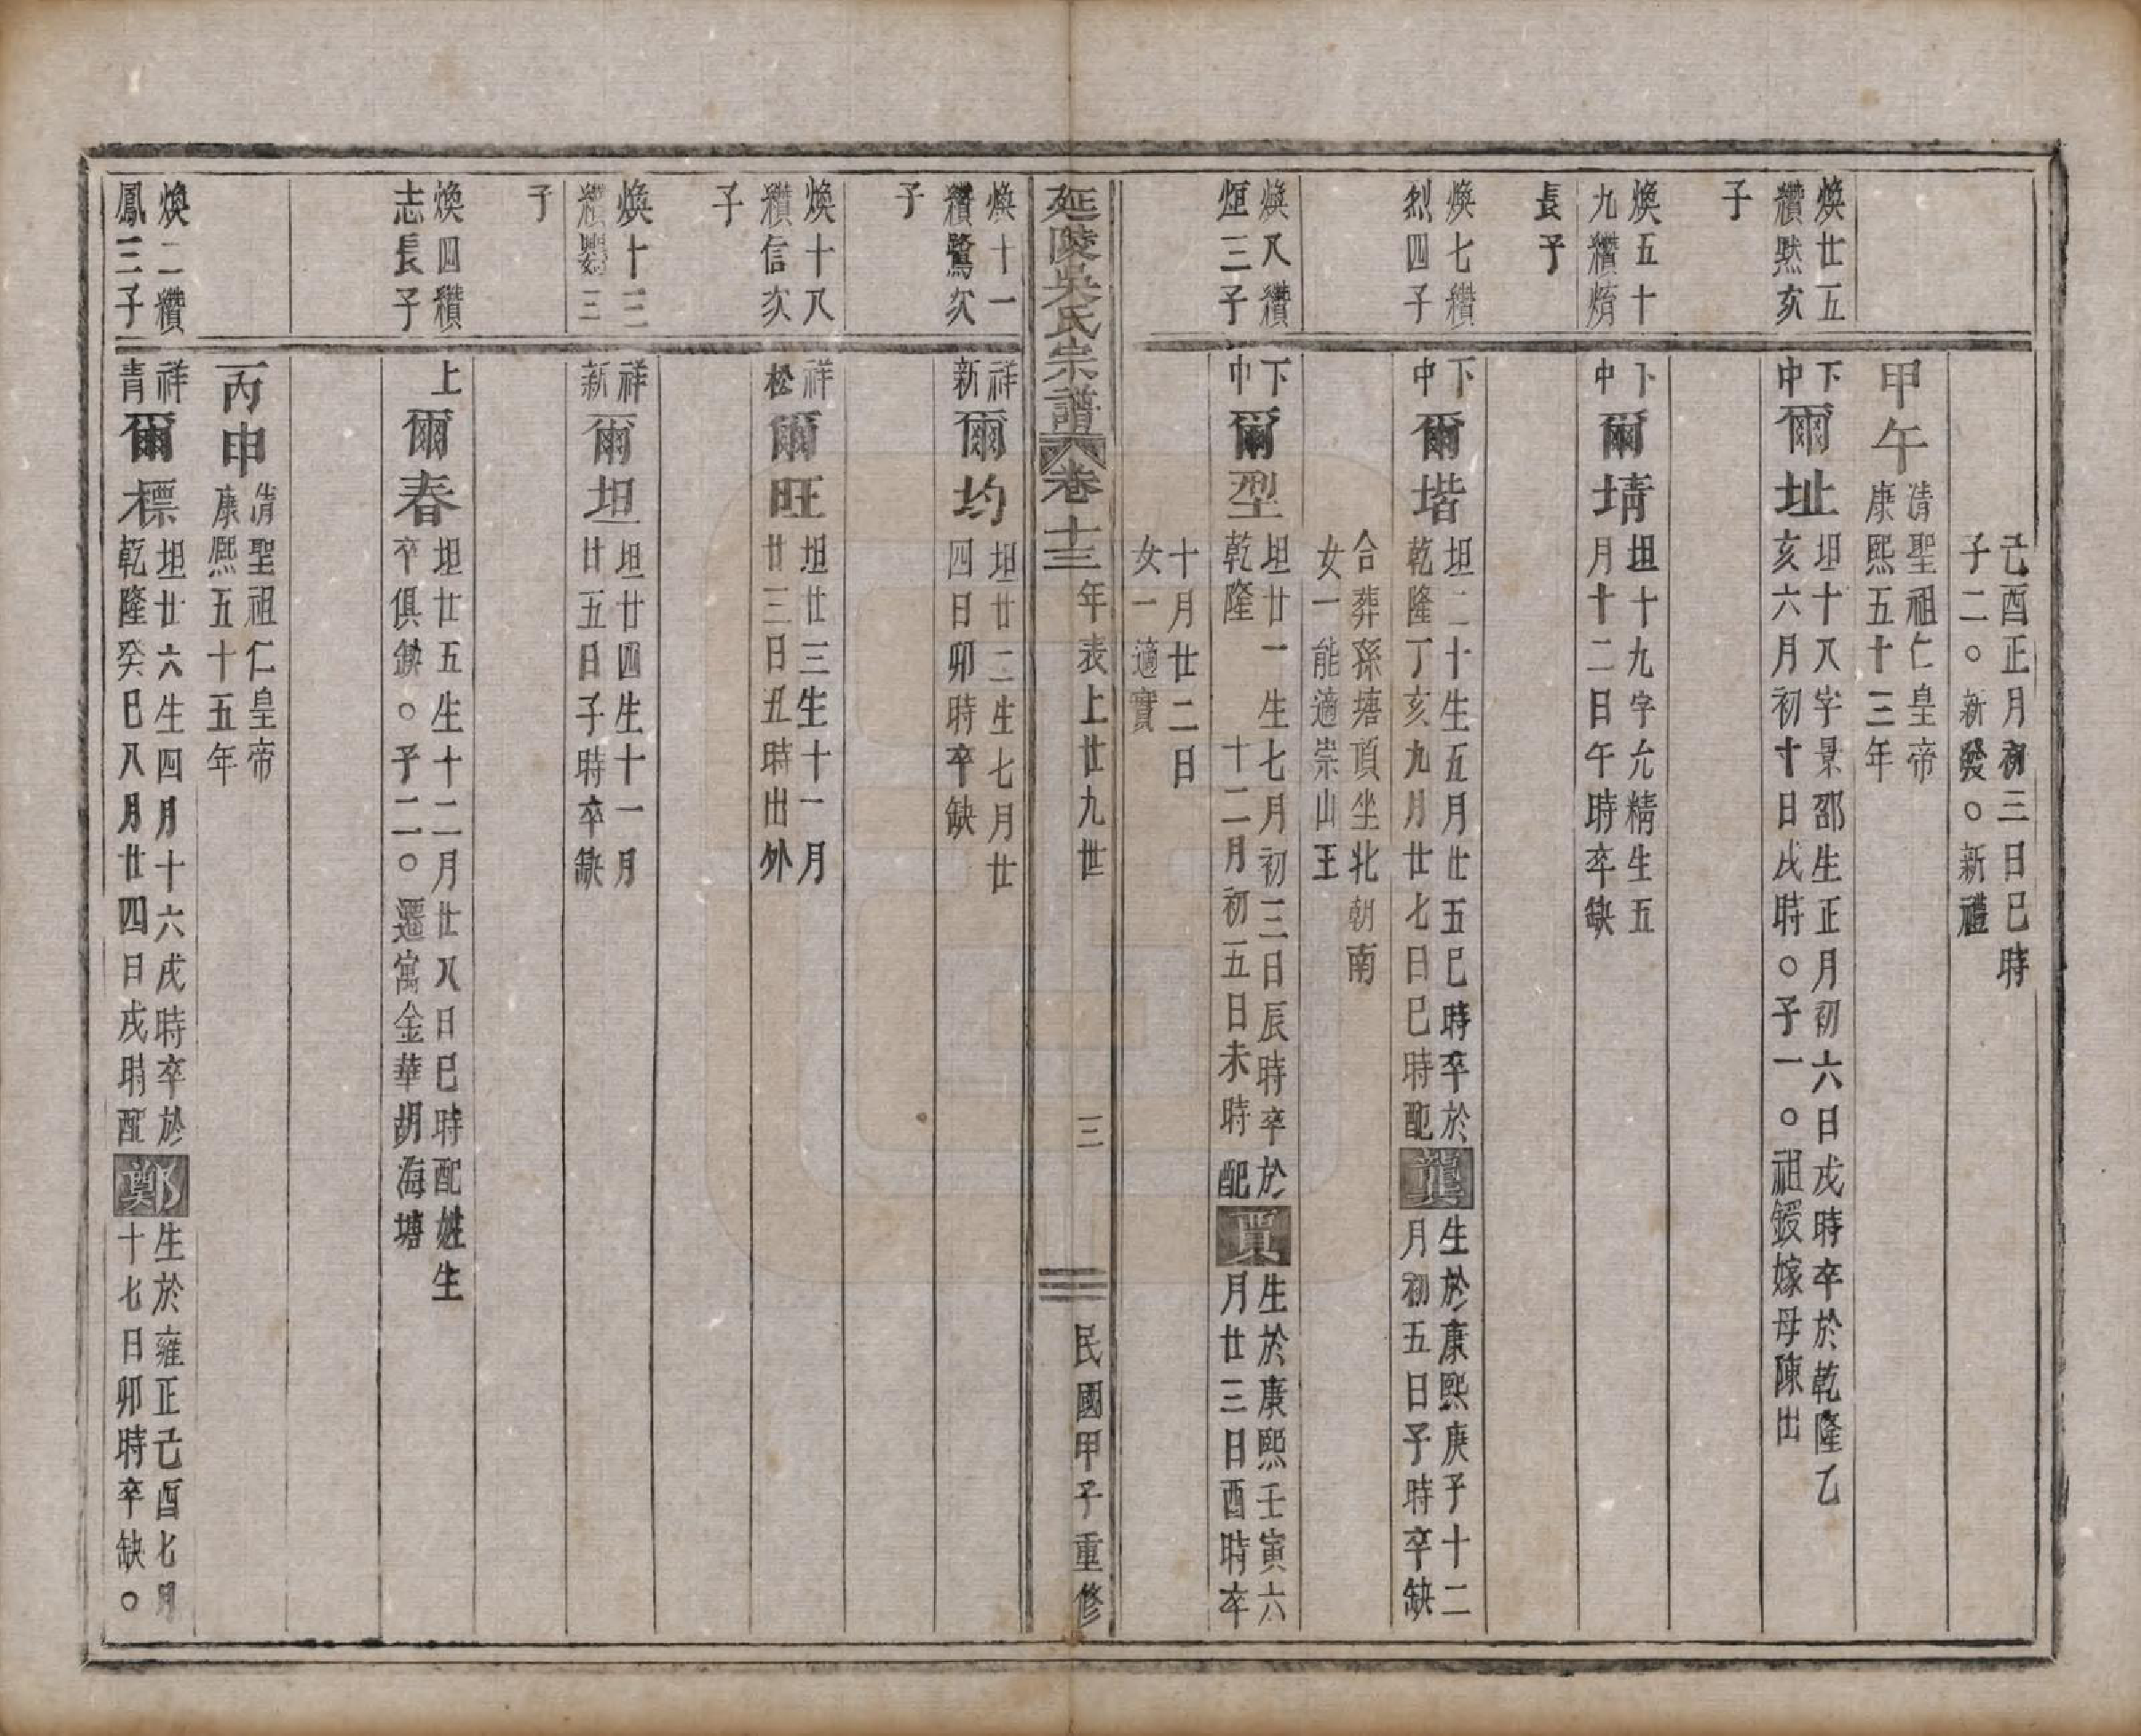 己酉正月初三日巳時
子二○新發○新禮
甲午
清聖祖仁皇帝
康熙五十三年
煥廿五
纘熙次
子
下
中
爾址
坦十八字景邵生正月初六日戌時卒於乾隆乙
亥六月初十日戌時○子一○祖鍰嫁母陳出
煥五十
九纘焴
長子
下
中
爾埥
坦十九字允精生五
月十二日午時卒缺
煥七纘
烈四子
下
中
爾堦
坦二十生五月廿五巳時卒於
乾隆丁亥九月廿七日巳時配
龔
生於康熙庚子十二
月初五日子時卒缺
合葬孫塘頂坐北朝南
女一能適崇山王
煥八纘
烜三子
下
中
爾型
坦廿一生七月初三日辰時卒於
乾隆 十二月初五日未時配
賈
生於康熙壬寅六
月廿三日酉時卒
十月廿二日
女一適寶
延陵吳氏宗譜 卷十三 年表上廿九世 三 民國甲子重修
煥十一
纘鷺次
子
祥
新
爾均
坦廿二生七月廿
四日卯時卒缺
煥十八
纘信次
子
祥
松
爾旺
坦廿三生十一月
廿三日丑時出外
煥十三
纘鸚三
子
祥
新
爾坦
坦廿四生十一月
廿五日子時卒缺
煥四纘
志長子
上
爾春
坦廿五生十二月廿八日巳時配姓生
卒俱缺○子二○遷寓金華胡海塘
丙申
清聖祖仁皇帝
康熙五十五年
煥二纘
鳳三子
祥
青
爾標
坦廿六生四月十六戌時卒於
乾隆癸巳八月廿四日戌時配
鄭
生於雍正己酉七月
十七日卯時卒缺○